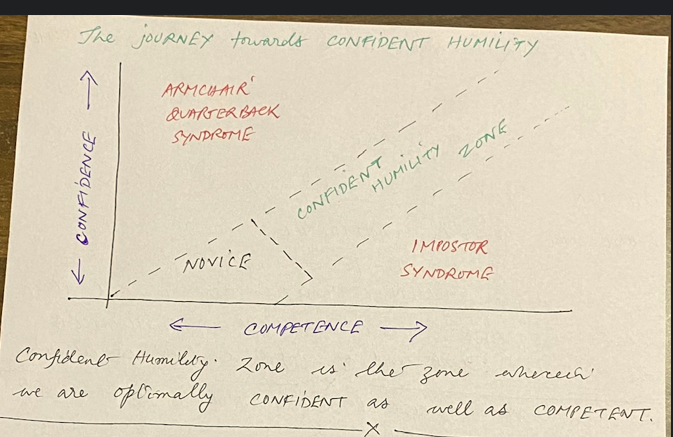 The JOURNEY towards CONFIDENT HUMILITY
ARMCHAIR
QUARTERBACK
SYNDROME
CONFIDENCE
CONFIDENT
HUMILITY ZONE
NOVICE
IMPOSTOR
SYNDROME
COMPETENCE
Confident Humility Zone is the zone wherein
we are optimally CONFIDENT as well as COMPETENT.